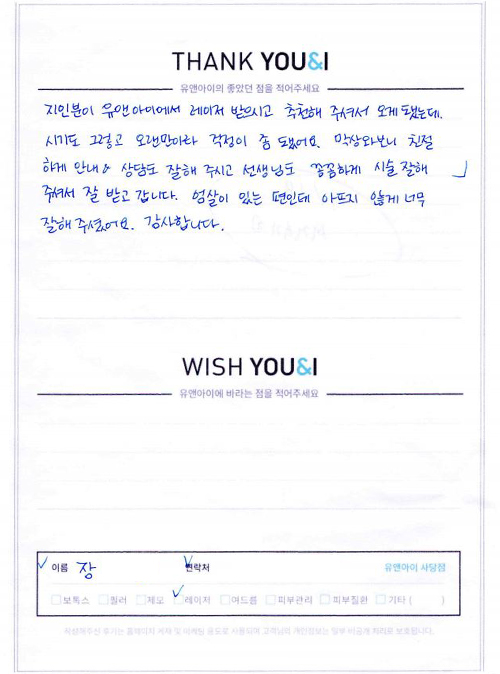 THANK YOU&I
유앤아이의 좋았던 점을 적어주세요
지인분이 유앤아이에서 레이저 받으시고 추천해 주셔서 오게 됐는데.
시기도 그렇고 오랜만이라 걱정이 좀 됐어요. 막상와보니 친절
하게 안내& 상담도 잘해 주시고 선생님도 꼼꼼하게 시술 잘해
주셔서 잘 받고 갑니다. 엄살이 있는 편인데 아프지 않게 너무
잘해 주셨어요. 감사합니다.
WISH YOU&I
유앤아이에 바라는 점을 적어주세요
이름 장 연락처 유앤아이 사당점
보톡스 필러 제모 레이저 여드름 피부관리 피부질환 기타 ( )
작성해주신 후기는 홈페이지 게재 및 마케팅 용도로 사용되며 고객님의 개인정보는 일부 비공개 처리로 보호됩니다.